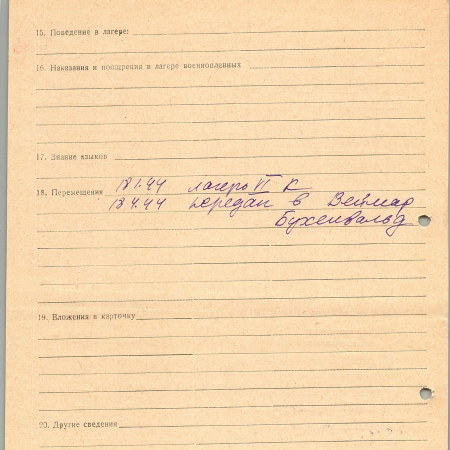 15. Поведение в лагере:
16. Наказания и поощрения в лагере военнопленных
17. Знание языков
18. Перемещения 18.1.44 лагерь VI К
18.4.44 передан в Веймар
Бухенвальд
19. Вложения в карточку
20. Другие сведения